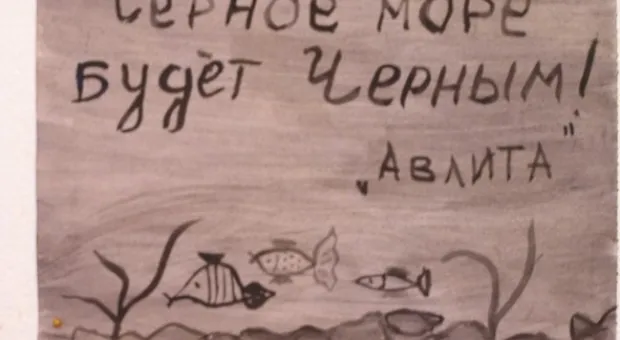 Черное море
будет Черным!
„Авлита"